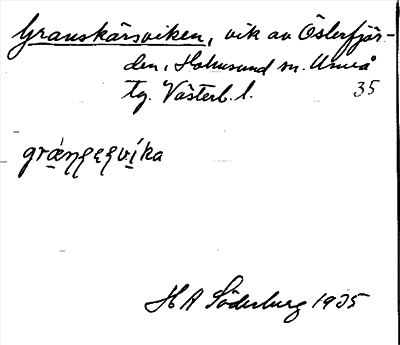 Granskärsviken, vik av Österfjär-
den, Holmsund sn. Umeå
tg. Västerb. l. 35
H A Söderburg 1935